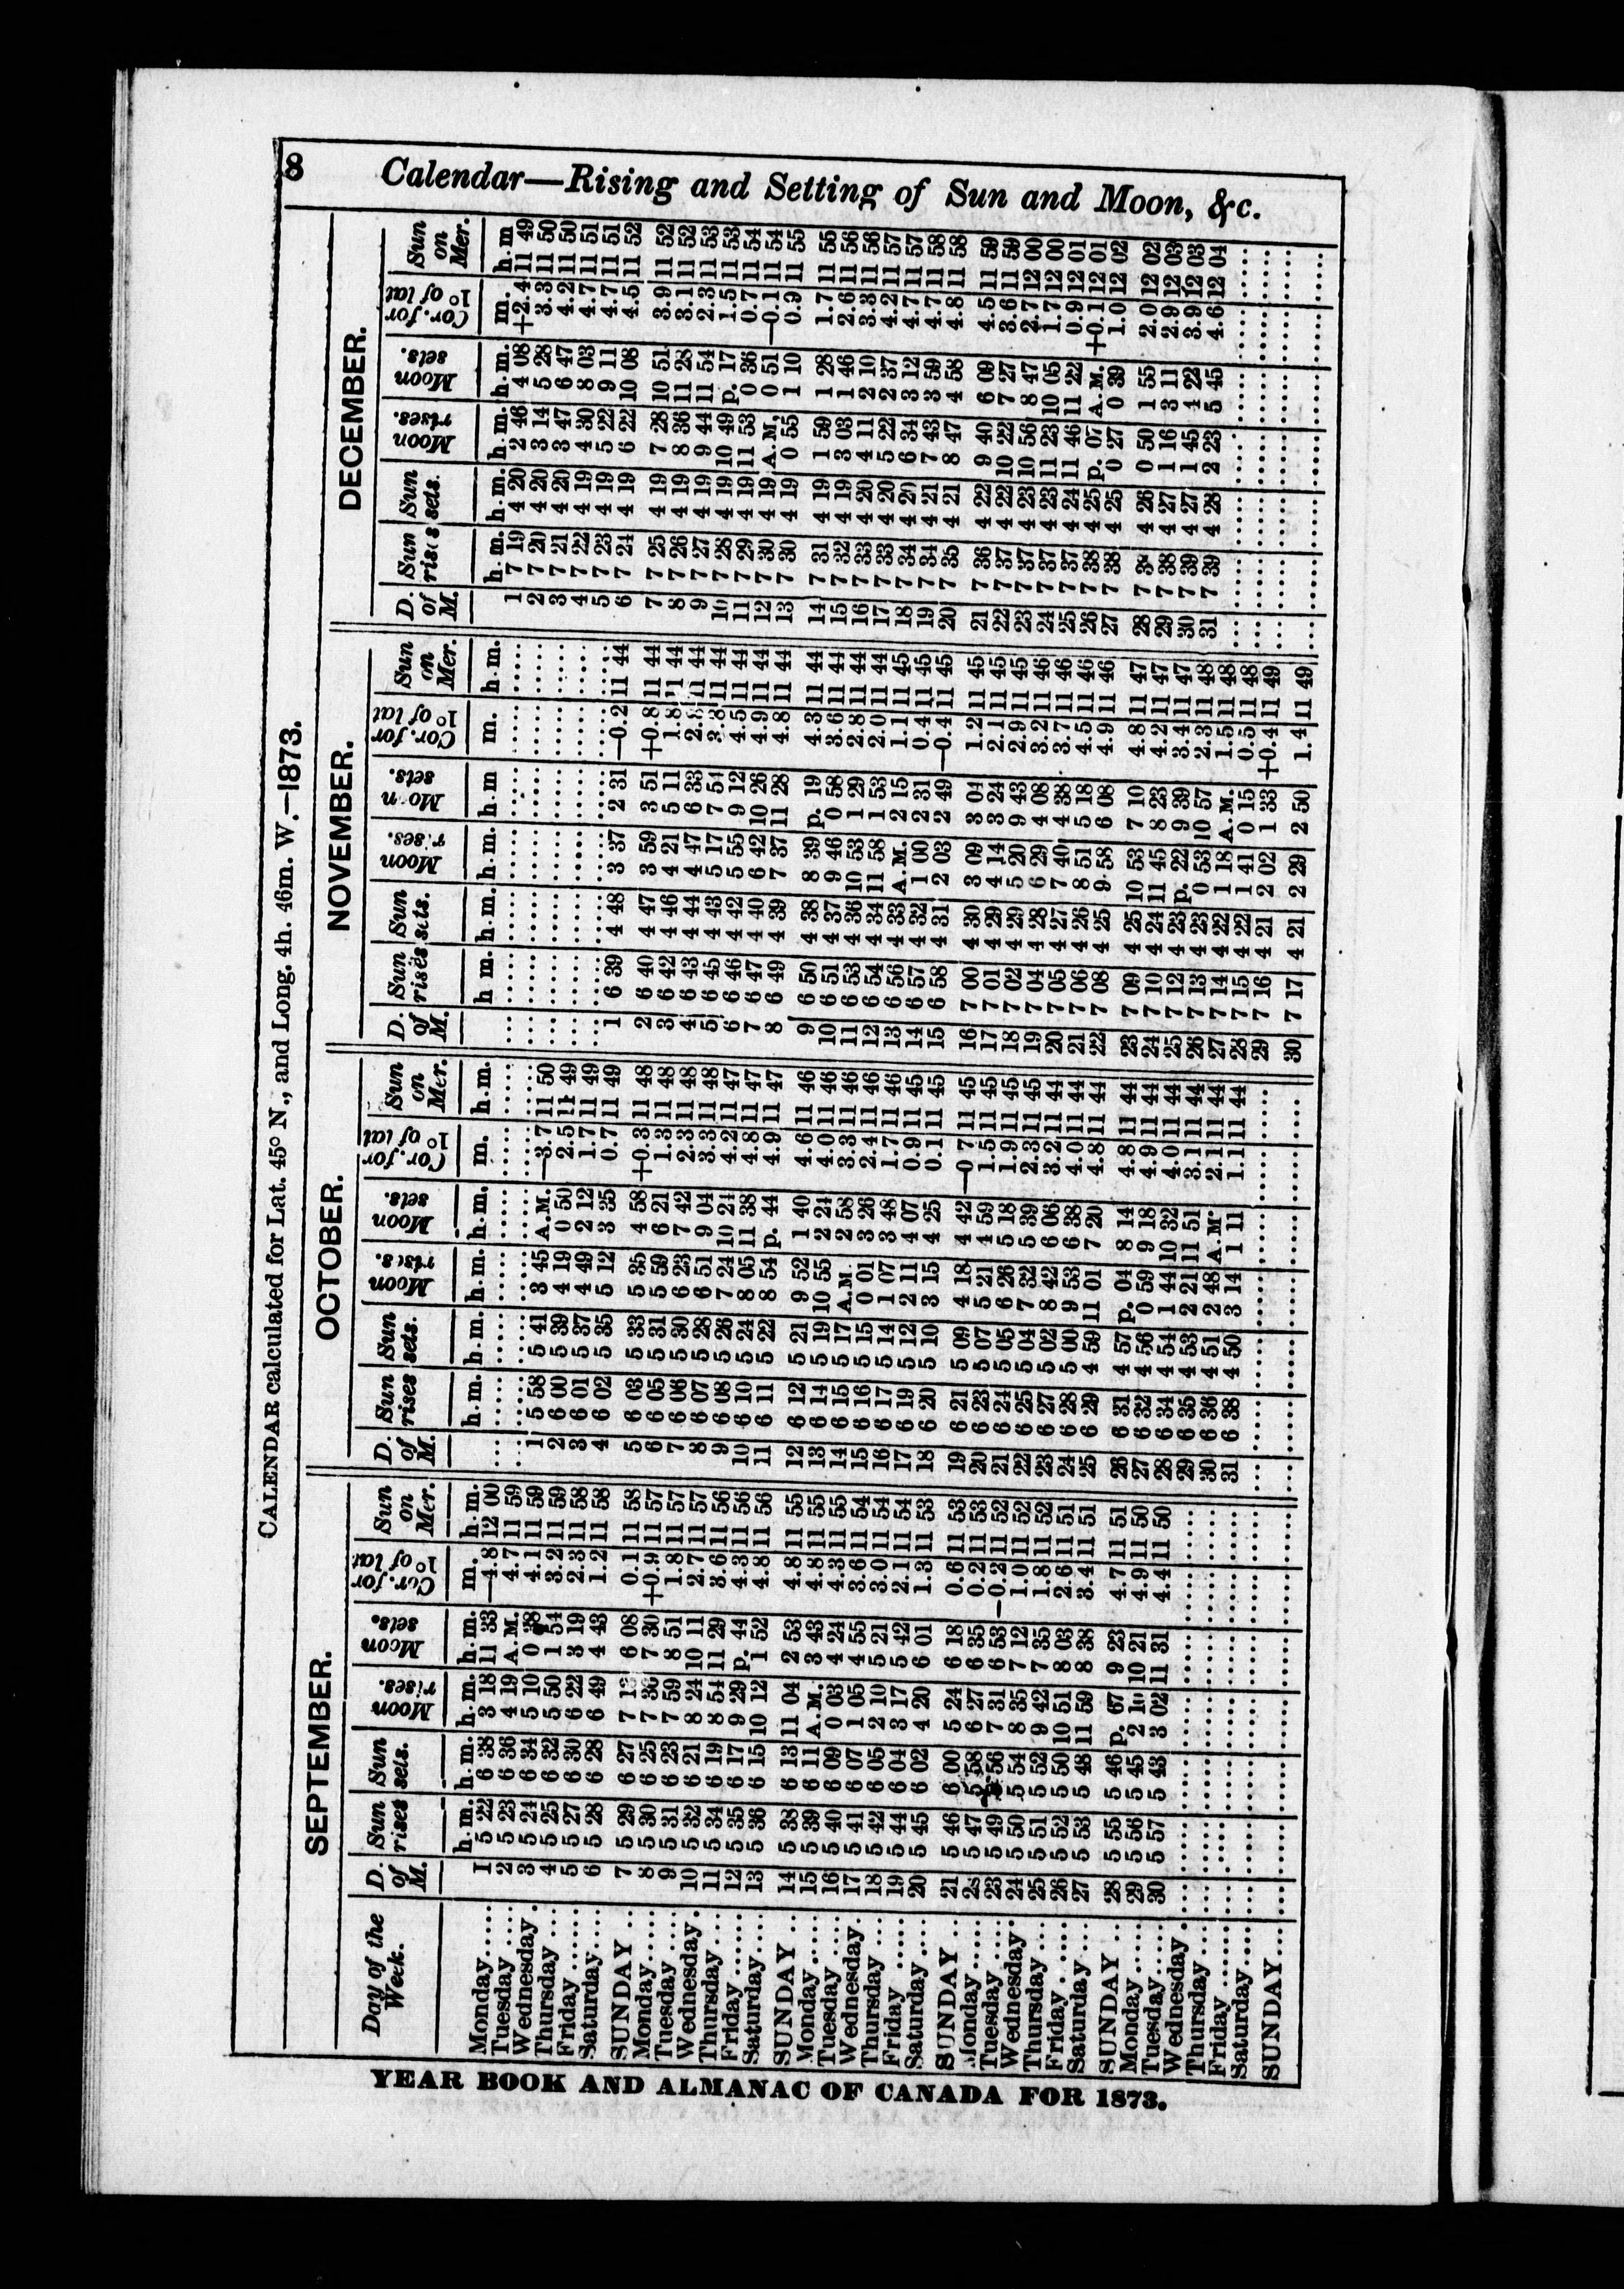 8 Calendar—Rising and Setting of Sun and Moon, &c.
CALENDAR calculated for Lat. 45° N., and Long. 4h. 46m. W.—1873.
SEPTEMBER. OCTOBER. NOVEMBER. DECEMBER.
Day of the Week. D. of M. Sun rises Sun sets. Moon rises. Moon sets. Cor. for 1° of lat Sun on Mer. D. of M. Sun rises Sun sets. Moon rises. Moon sets. Cor. for 1° of lat Sun on Mer. D. of M. Sun rises Sun sets. Moon rises. Moon sets. Cor. for 1° of lat Sun on Mer. D. of M. Sun rises Sun sets. Moon rises. Moon sets. Cor. for 1° of lat Sun on Mer.
h. m. h. m. h. m. h. m. m. h. m. h. m. h. m. h. m. h. m. m. h. m. h m. h. m. h. m. h. m m. h. m. h. m. h. m. h. m. h. m. m. h. m
Monday..... 1 5 22 6 38 3 18 11 33 —4.8 12 00 1 7 19 4 20 2 46 4 08 +2.4 11 49
Tuesday.... 2 5 23 6 36 4 19 A.M. 4.7 11 59 2 7 20 4 20 3 14 5 28 3.3 11 50
Wednesday. 3 5 24 6 34 5 10 0 38 4.1 11 59 1 5 58 5 41 3 45 A.M. —3.7 11 50 3 7 21 4 20 3 47 6 47 4.2 11 50
Thursday... 4 5 25 6 32 5 50 1 54 3.2 11 59 2 6 00 5 39 4 19 0 50 2.5 11 49 4 7 22 4 19 4 30 8 03 4.7 11 51
Friday...... 5 5 27 6 30 6 22 3 19 2.3 11 58 3 6 01 5 37 4 49 2 12 1.7 11 49 5 7 23 4 19 5 22 9 11 4.7 11 51
Saturday.... 6 5 28 6 28 6 49 4 43 1.2 11 58 4 6 02 5 35 5 12 3 35 0.7 11 49 1 6 39 4 48 3 37 2 31 —0.2 11 44 6 7 24 4 19 6 22 10 08 4.5 11 52
SUNDAY .. 7 5 29 6 27 7 13 6 08 0.1 11 58 5 6 03 5 33 5 35 4 58 +0.3 11 48 2 6 40 4 47 3 59 3 51 +0.8 11 44 7 7 25 4 19 7 28 10 51 3.9 11 52
Monday..... 8 5 30 6 25 7 36 7 30 +0.9 11 57 6 6 05 5 31 5 59 6 21 1.3 11 48 3 6 42 4 46 4 21 5 11 1.8 11 44 8 7 26 4 19 8 36 11 28 3.1 11 52
Tuesday.... 9 5 31 6 23 7 59 8 51 1.8 11 57 7 6 06 5 30 6 23 7 42 2.3 11 48 4 6 43 4 44 4 47 6 33 2.8 11 44 9 7 27 4 19 9 44 11 54 2.3 11 53
Wednesday. 10 5 32 6 21 8 24 10 11 2.7 11 57 8 6 07 5 28 6 51 9 04 3.3 11 48 5 6 45 4 43 5 17 7 54 3.8 11 44 10 7 28 4 19 10 49 p. 17 1.5 11 53
Thursday... 11 5 34 6 19 8 54 11 29 3.6 11 56 9 6 08 5 26 7 24 10 24 4.2 11 47 6 6 46 4 42 5 55 9 12 4.5 11 44 11 7 29 4 19 11 53 0 36 0.7 11 54
Friday...... 12 5 35 6 17 9 29 p. 44 4.3 11 56 10 6 10 5 24 8 05 11 38 4.8 11 47 7 6 47 4 40 6 42 10 26 4.9 11 44 12 7 30 4 19 A.M. 0 51 —0.1 11 54
Saturday.... 13 5 36 6 15 10 12 1 52 4.8 11 56 11 6 11 5 22 8 54 p. 44 4.9 11 47 8 6 49 4 39 7 37 11 28 4.8 11 44 13 7 30 4 19 0 55 1 10 0.9 11 55
SUNDAY .. 14 5 38 6 13 11 04 2 53 4.8 11 55 12 6 12 5 21 9 52 1 40 4.6 11 46 9 6 50 4 38 8 39 p. 19 4.3 11 44 14 7 31 4 19 1 59 1 28 1.7 11 55
Monday..... 15 5 39 6 11 A.M. 3 43 4.8 11 55 13 6 14 5 19 10 55 2 24 4.0 11 46 10 6 51 4 37 9 46 0 58 3.6 11 44 15 7 32 4 19 3 03 1 46 2.6 11 56
Tuesday.... 16 5 40 6 09 0 03 4 24 4.3 11 55 14 6 15 5 17 A.M. 2 58 3.3 11 46 11 6 53 4 36 10 53 1 29 2.8 11 44 16 7 33 4 20 4 11 2 10 3.3 11 56
Wednesday. 17 5 41 6 07 1 05 4 55 3.6 11 54 15 6 16 5 15 0 01 3 26 2.4 11 46 12 6 54 4 34 11 58 1 53 2.0 11 44 17 7 33 4 20 5 22 2 37 4.2 11 57
Thursday... 18 5 42 6 05 2 10 5 21 3.0 11 54 16 6 17 5 14 1 07 3 48 1.7 11 46 13 6 56 4 33 A.M. 2 15 1.1 11 45 18 7 34 4 20 6 34 3 12 4.7 11 57
Friday ..... 19 5 44 6 04 3 17 5 42 2.1 11 54 17 6 19 5 12 2 11 4 07 0.9 11 45 14 6 57 4 32 1 00 2 31 0.4 11 45 19 7 34 4 21 7 43 3 59 4.7 11 58
Saturday.... 20 5 45 6 02 4 20 6 01 1.3 11 53 18 6 20 5 10 3 15 4 25 0.1 11 45 15 6 58 4 31 2 03 2 49 —0.4 11 45 20 7 35 4 21 8 47 4 58 4.8 11 58
SUNDAY .. 21 5 46 6 00 5 24 6 18 0.6 11 53 19 6 21 5 09 4 18 4 42 —0 7 11 45 16 7 00 4 30 3 09 3 04 1.2 11 45 21 7 36 4 22 9 40 6 09 4.5 11 59
Monday..... 22 5 47 5 58 6 27 6 35 0.2 11 53 20 6 23 5 07 5 21 4 59 1.5 11 45 17 7 01 4 29 4 14 3 24 2.1 11 45 22 7 37 4 22 10 22 7 27 3.6 11 59
Tuesday.... 23 5 49 5 56 7 31 6 53 —0.2 11 52 21 6 24 5 05 6 26 5 18 1.9 11 45 18 7 02 4 29 5 20 9 43 2.9 11 45 23 7 37 4 23 10 56 8 47 2.7 12 00
Wednesday. 24 5 50 5 54 8 35 7 12 1.0 11 52 22 6 25 5 04 7 32 5 39 2.3 11 45 19 7 04 4 28 6 29 4 08 3.2 11 46 24 7 37 4 23 11 23 10 05 1.7 12 00
Thursday... 25 5 51 5 52 9 42 7 35 1.8 11 52 23 6 27 5 02 8 42 6 06 3.2 11 44 20 7 05 4 27 7 40 4 38 3.7 11 46 25 7 37 4 24 11 46 11 22 0.9 12 01
Friday...... 26 5 52 5 50 10 51 8 03 2.6 11 51 24 6 28 5 00 9 53 6 38 4.0 11 44 21 7 06 4 26 8 51 5 18 4.5 11 46 26 7 38 4 25 p. 07 A.M. +0.1 12 01
Saturday.... 27 5 53 5 48 11 59 8 38 3.4 11 51 25 6 29 4 59 11 01 7 20 4.8 11 44 22 7 08 4 25 9 58 6 08 4.9 11 46 27 7 38 4 25 0 27 0 39 1.0 12 02
SUNDAY .. 28 5 55 5 46 p. 67 9 23 4.7 11 51 26 6 31 4 57 p. 04 8 14 4.8 11 44 23 7 09 4 25 10 53 7 10 4.8 11 47 28 7 38 4 26 0 50 1 55 2.0 12 02
Monday..... 29 5 56 5 45 2 10 10 21 4.9 11 50 27 6 32 4 56 0 59 9 18 4.9 11 44 24 7 10 4 24 11 45 8 23 4.2 11 47 29 7 38 4 27 1 16 3 11 2.9 12 03
Tuesday.... 30 5 57 5 43 3 02 11 31 4.4 11 50 28 6 34 4 54 1 44 10 32 4.0 11 44 25 7 12 4 23 p. 22 9 39 3.4 11 47 30 7 39 4 27 1 45 4 22 3.9 12 03
Wednesday. 29 6 35 4 53 2 21 11 51 3.1 11 44 26 7 13 4 23 0 53 10 57 2.3 11 48 31 7 39 4 28 2 23 5 45 4.6 12 04
Thursday... 30 6 36 4 51 2 48 A.M. 2.1 11 44 27 7 14 4 22 1 18 A.M. 1.5 11 48
Friday...... 31 6 38 4 50 3 14 1 11 1.1 11 44 28 7 15 4 22 1 41 0 15 0.5 11 48
Saturday.... 29 7 16 4 21 2 02 1 33 +0.4 11 49
SUNDAY... 30 7 17 4 21 2 29 2 50 1.4 11 49
YEAR BOOK AND ALMANAC OF CANADA FOR 1873.